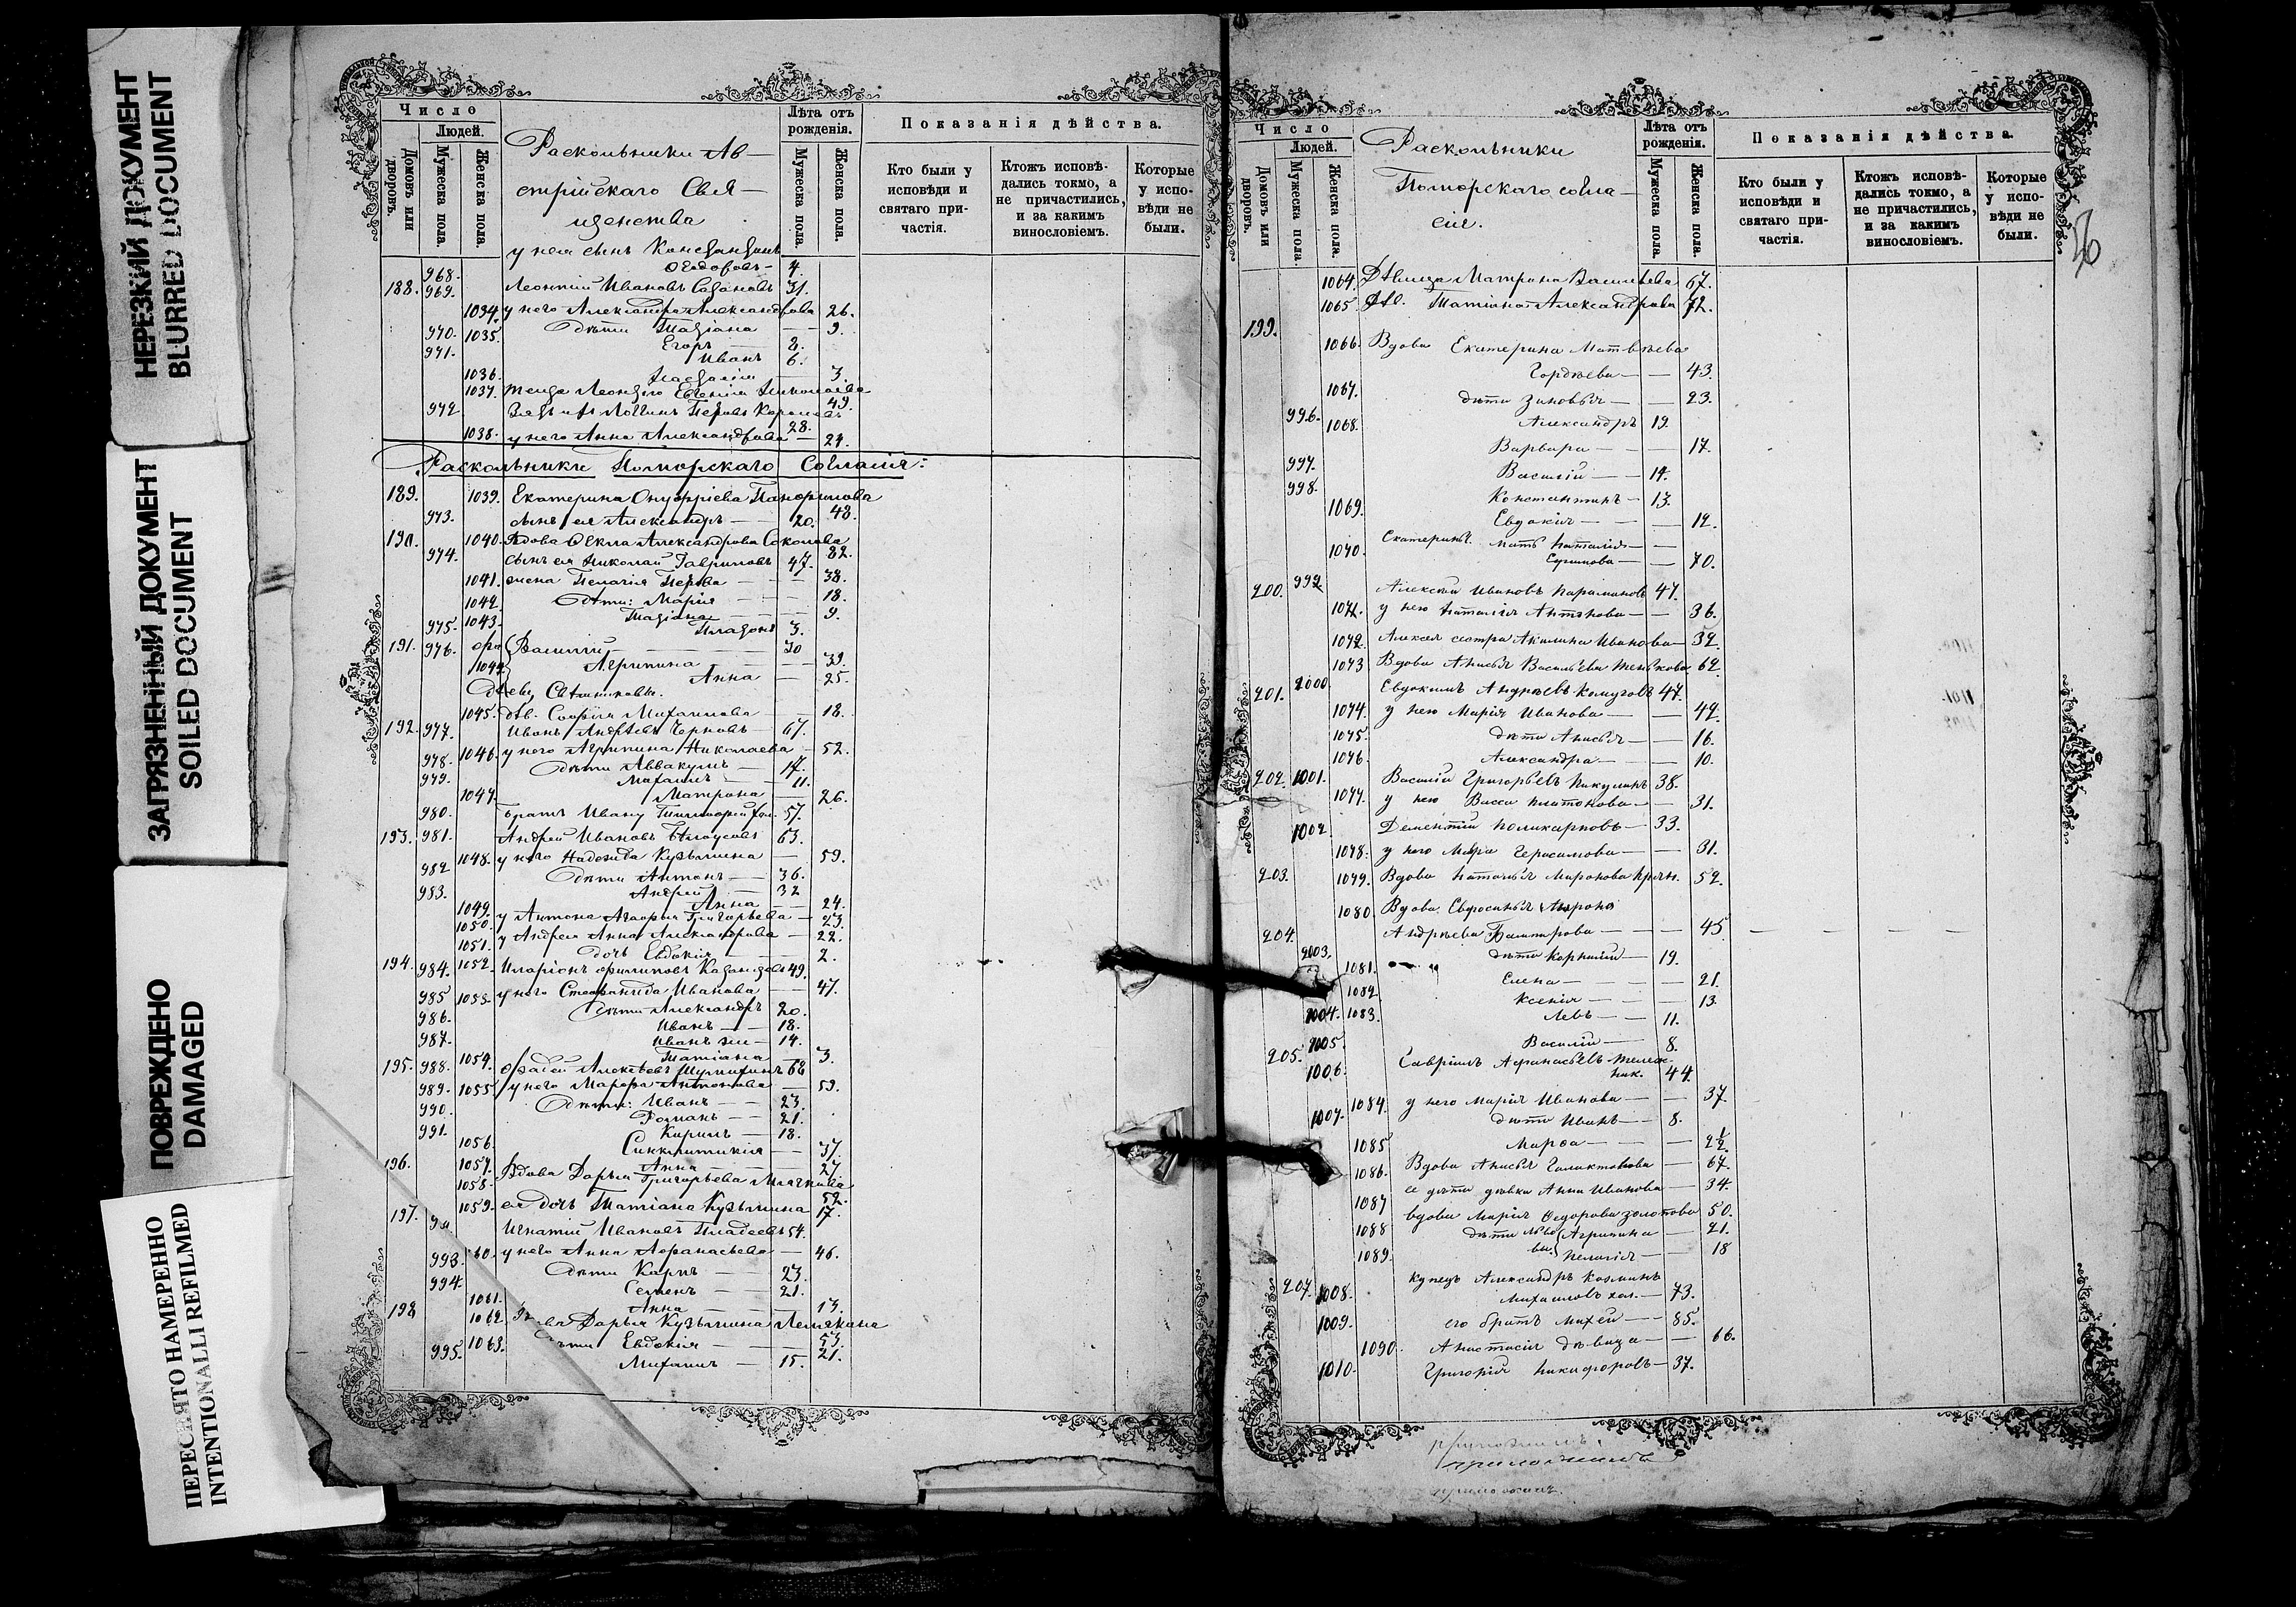 НЕРЕЗКИЙ ДОКУМЕНТ
BLURRED DOCUMENT
ЗАГРЯЗНЕННЫЙ ДОКУМЕНТ
SOILED DOCUMENT
ПОВРЕЖДЕНО
DAMAGED
ПЕРЕСНЯТО НАМЕРЕННО
INTENTIONALLI REFILMED
Число
Людей.
Домовъ или дворовъ.
Мужеска пола.
Женска пола.
Раскольники Ав-
стрійскаго Свя-
щенства
Лѣта отъ рожденія.
Мужеска пола.
Женска пола.
Показанія дѣйства.
Кто были у исповѣди и святаго при-частія.
Ктожъ исповѣ-дались токмо, а не причастились, и за какимъ винословіемъ.
Которые у испо-вѣди не были.
у нея сынъ Константинъ
968. Ѳеодоровъ - 4.
188. 969. Леонтій Ивановъ 31.
1034. у него Александра Александрова 26.
1035. дѣти Татіана 9.
970. Егоръ 8.
971. Иванъ 6.
1036. 3.
1037. теща Леонтія Евгенія Николаева 49.
972 Петровъ 28.
1038. у него Анна Александрова 24.
Раскольники Поморскаго Согласія:
189. 1039. Екатерина Онуфріева 48.
973. сынъ ея Александръ 20.
190. 1040. Вдова Ѳекла Александрова Соколова 82.
974. сынъ ея Николай Гавриловъ 47.
1041. жена Пелагія Петрова 38.
1042. дѣти: Марія 18.
1043. Татіана 9.
975. Платонъ 3.
191. 976. Василій 30
1044 Агрипина 39.
Анна 25.
1045. дѣв. Софія Михаилова 18.
192. 977. Иванъ Андреевъ Черновъ 67.
1046. у него Агрипина Николаева 52.
978. дѣти Аввакумъ 17.
979. Михаилъ 11.
1047. Матрона 26.
980. Братъ Ивану Тимофей хол. 57.
193. 981. Андрей Ивановъ Бѣлоусовъ 63.
1048. у него Надежда Кузьмина 59.
982 дѣти Антонъ 36.
983. Андрей 32
1049. Анна 24.
1050. у Антона Григорьева 23.
1051. у Андрея Анна Александрова 22.
1052. дочь Евдокія 2.
194. 984. Иларіонъ Филиповъ 49.
1053. у него Стефанида Иванова 47.
985 дѣти Александръ 20.
986. Иванъ 18.
987. Иванъ же 14.
1054. Татіана 3.
195. 988. Фадей Алексѣевъ 68
1055. у него Марфа Антонова 59.
989. дѣти: Иванъ 23.
990. Романъ 21.
991. Кирилъ 18.
1056. Синклитикія 37.
1057. Анна 27.
196. 1058. Вдова Дарья Григорьева 52.
1059. ея дочь Татіана Кузьмина 17.
197. Игнатій Ивановъ 54.
у него Анна Афанасьева 46.
993. дѣти Карпъ 23.
994. Семенъ 21.
1061. Анна 13.
198 1062. Дарья Кузьмина 53.
1063. Евдокія 21.
995. Михаилъ 15.
Число
Людей.
Домовъ или дворовъ.
Мужеска пола.
Женска пола.
Раскольники
Поморскаго согла-
сія.
Лѣта отъ рожденія.
Мужеска пола.
Женска пола.
Показанія дѣйства.
Кто были у исповѣди и святаго при-частія.
Ктожъ исповѣ-дались токмо, а не причастились, и за какимъ винословіемъ.
Которые у испо-вѣди не были.
26
1064. Дѣвица Матрона Васильева 67.
1065. Дѣв. Татіана Александрова 72.
199. 1066. Вдова Екатерина Матвѣева
Гордѣева 43.
1067. дѣти Зиновья 23.
996. Александръ 19
1068. Варвара 17.
997. Василій 14.
998. Константинъ 13.
1069. Евдокія 12.
Екатерины мать Наталія
1070. Ефимова 70.
200. 999 Алексѣй Ивановъ Парамоновъ 47.
1071. у него Наталія Антонова 36.
1072. Алексѣя сестра Акилина Иванова 32.
1073 Вдова Анисья Васильева 62.
201. 2000 Евдокимъ Андреевъ 47.
1074. у него Марія Иванова 42.
1075. дѣти Анисья 16.
1076. Александра 10.
202. 1001. Василій Григорьевъ Никулинъ 38.
1077. у него Васса Платонова 31.
1002. Дементій Поликарповъ 33.
1078. у него Герасимова 31.
203. 1079. Вдова Наталья Миронова 52.
1080. Вдова Евфросинья
204. Андреева 45.
2003. дѣти Корнилій 19.
1081. Елена 21.
1082 Ксенія 13.
1004. 1083. Левъ 11.
2005. Василій 8.
205. 1006. Гавріилъ Афанасьевъ 44.
1084. у него Марія Иванова 37.
1007. дѣти Иванъ 8.
1085 Марѳа 2½.
1086. Вдова Анисья Галактіонова 67.
1087 ее дѣти дѣвка Анна Иванова 34.
вдова Марія Ѳедорова Золотова 50.
1088 дѣти Агрипина 21.
1089. Пелагія 18
207. Купецъ Александръ Козминъ
1008. Михаиловъ хол. 73.
1009. его братъ Михей 85.
1090. Анастасія дѣвица 66.
1010. Григорій Никифоровъ 37.